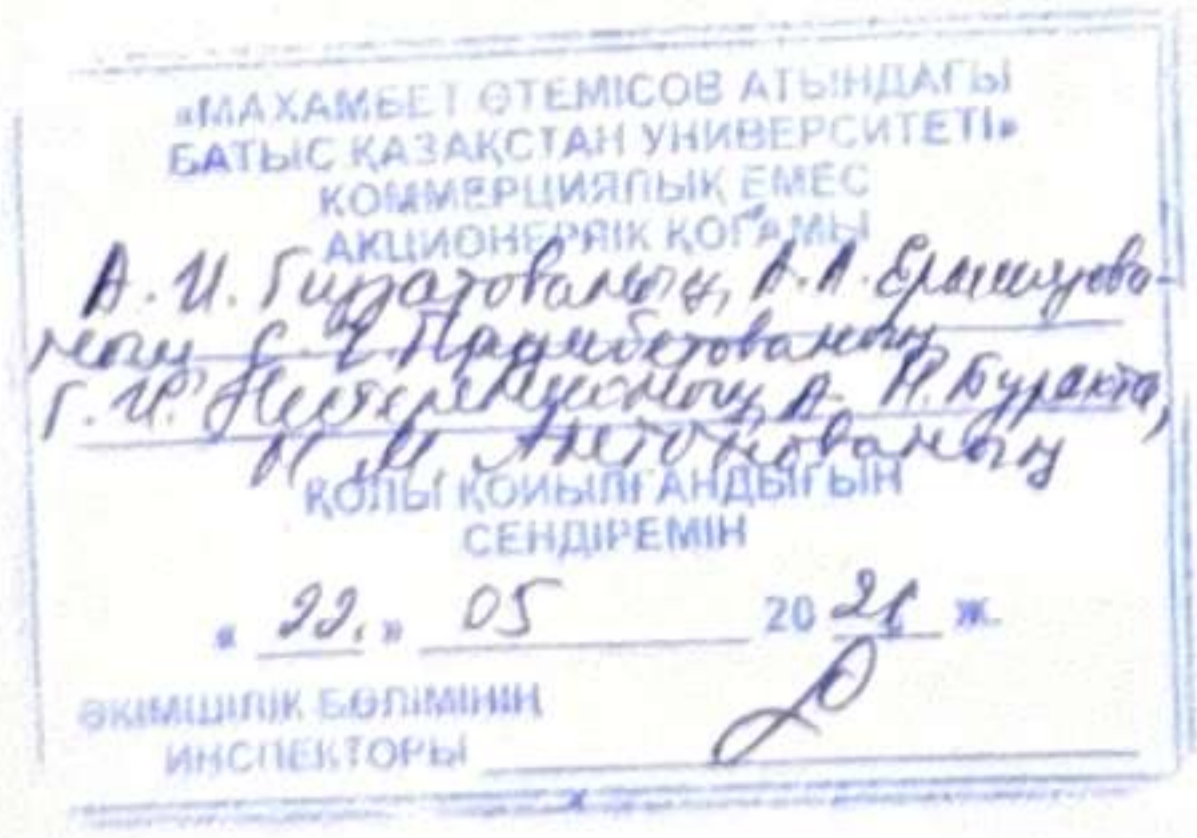 «МАХАМБЕТ ӨТЕМІСОВ АТЫНДАҒЫ
БАТЫС ҚАЗАҚСТАН УНИВЕРСИТЕТІ»
КОММЕРЦИЯЛЫҚ ЕМЕС
АКЦИОНЕРЛІК ҚОҒАМЫ
А. И. Гиззатованың, А. А.
С. Е.
Г. И. А. Н. Буракта,
Н. М. Антонованың
ҚОЛЫ ҚОЙЫЛҒАНДЫҒЫН
СЕНДІРЕМІН
« 22. » 05 2021 ж.
ӘКІМШІЛІК БӨЛІМІНІҢ
ИНСПЕКТОРЫ